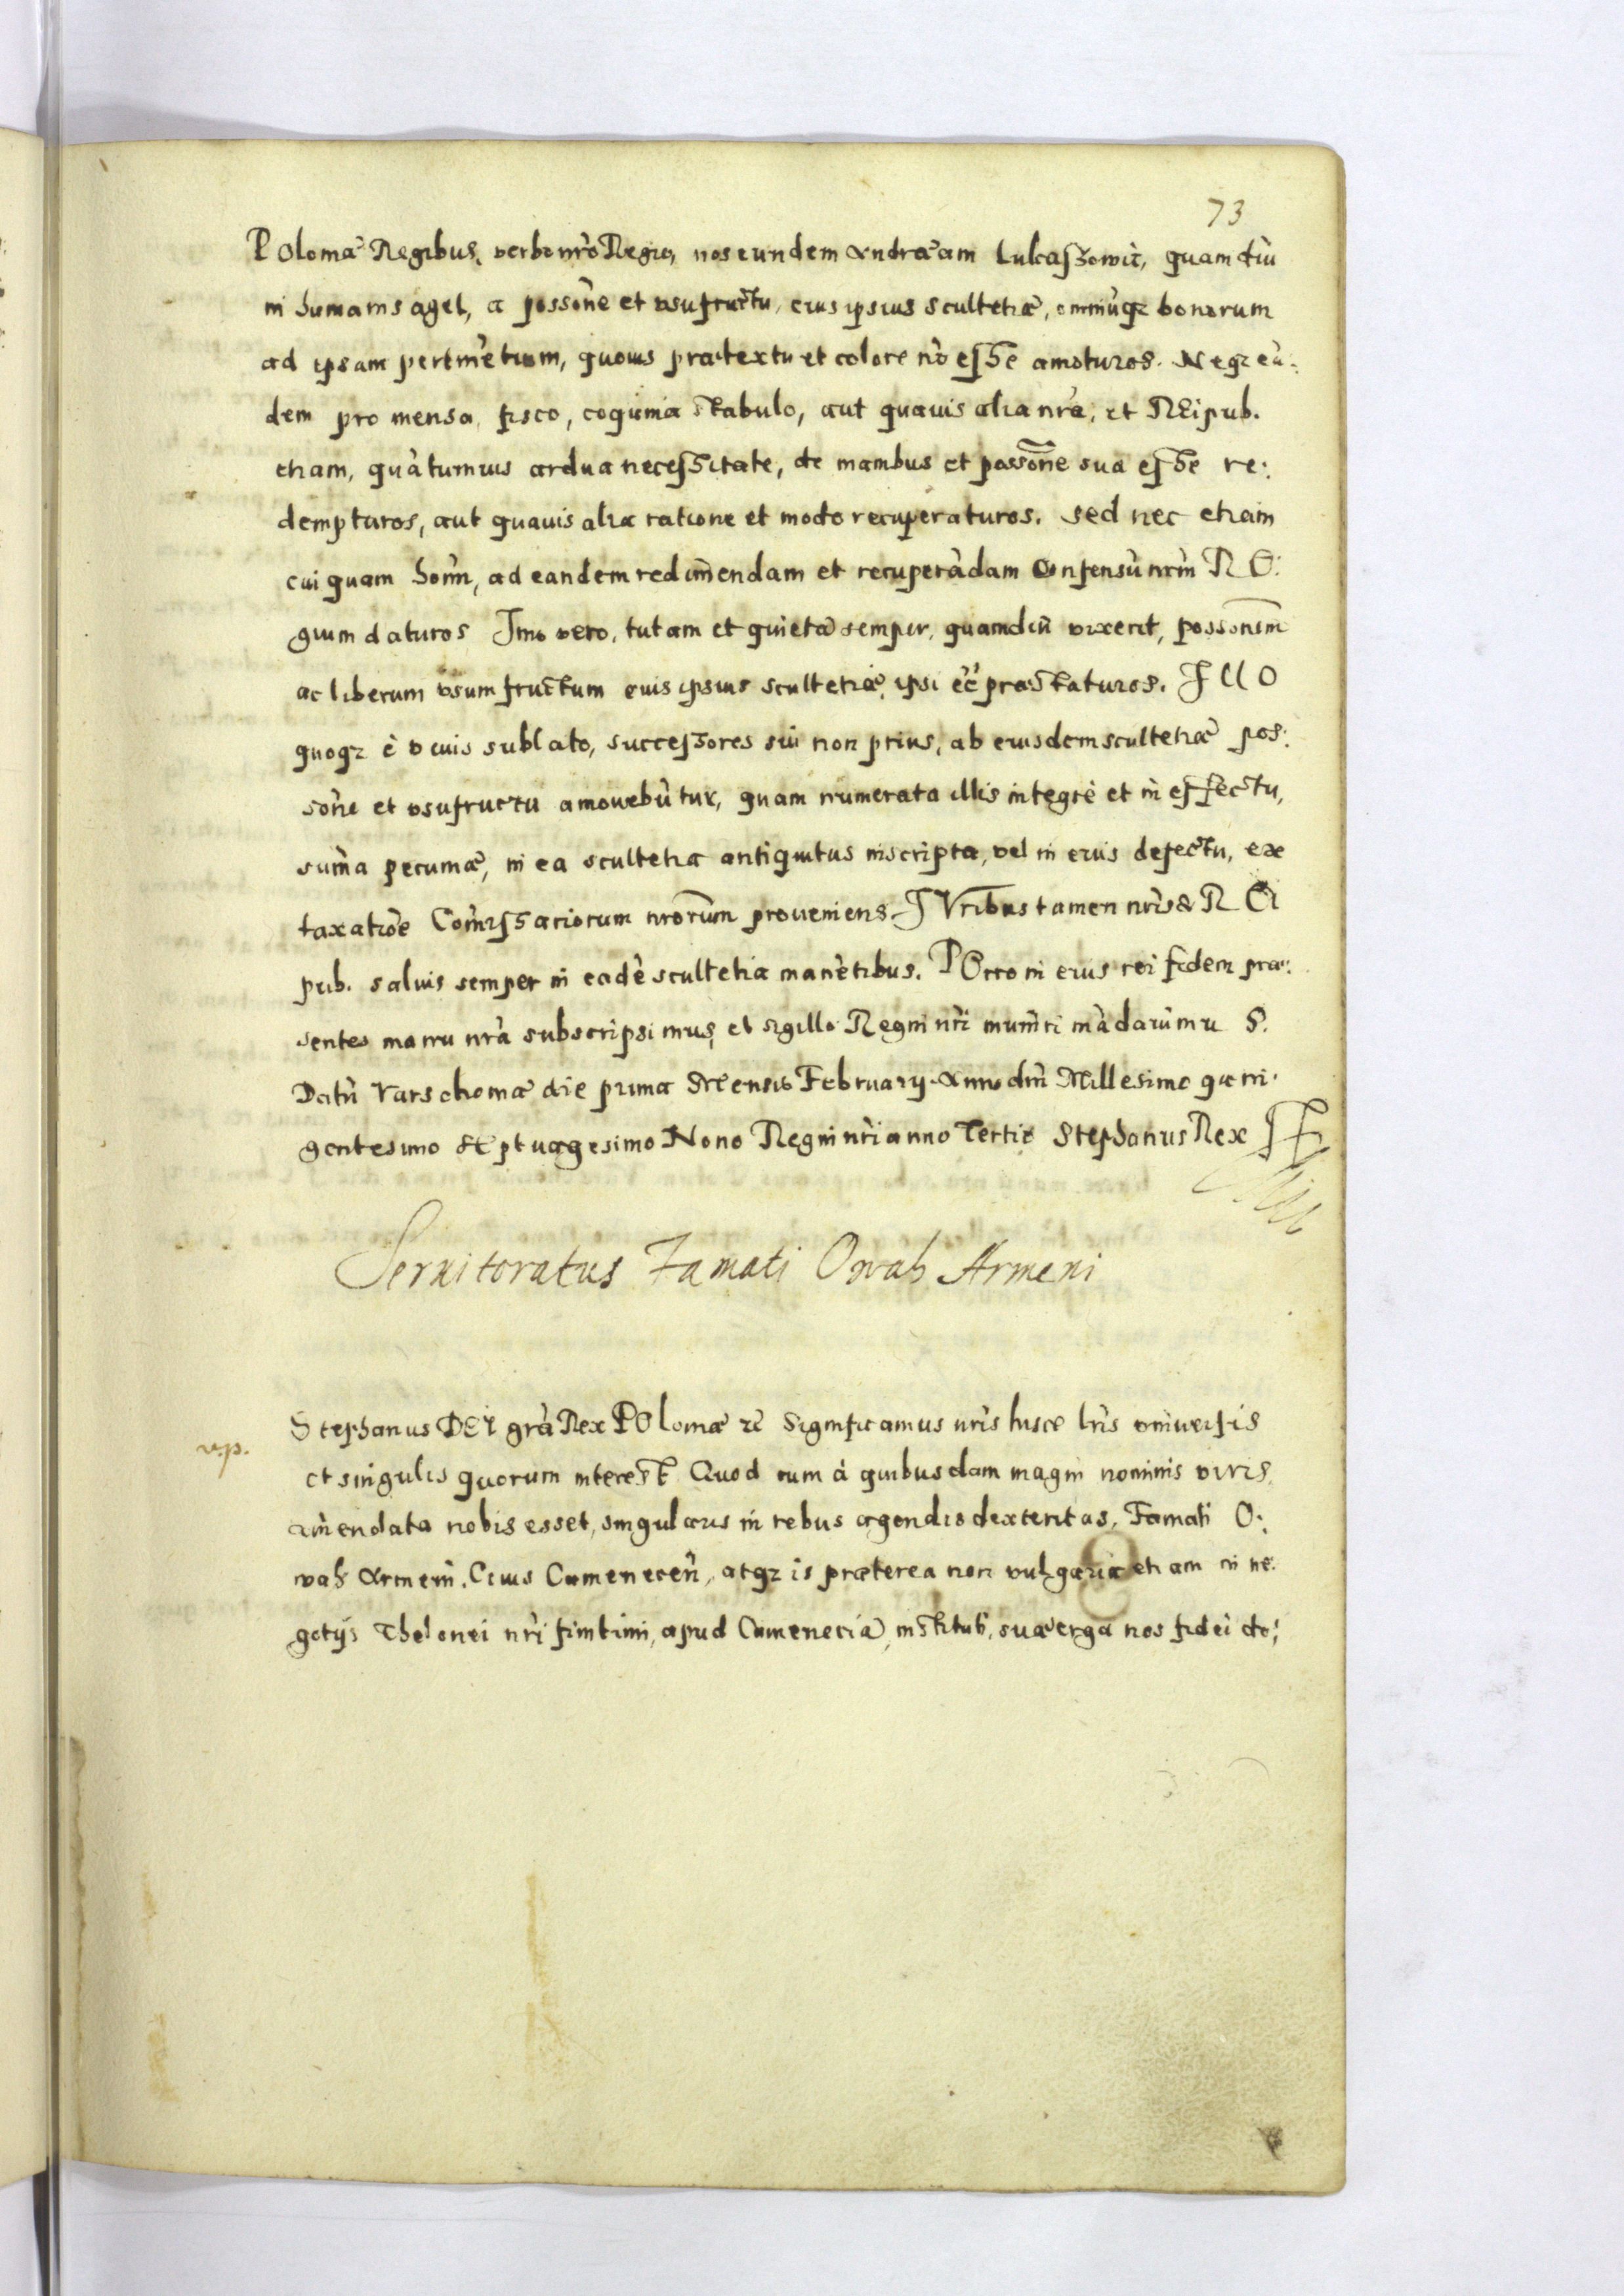 73
Poloniæ Regibus, verbo nrō Regio, nos eundem Andræam Lukaszowic, quam diu
in humanis aget, a possone et usufructu, eius ipsius scultetiæ, omniuqz bonorum
ad ipsam pertinetium, quovis prætextu et colore nō esse amoturos. Neqz eu:
dem pro mensa, fisco, coquina stabulo, aut quavis alia nrā, et REipub.
etiam, quātumvis ardua necessitate, de manibus et possone sua esse re:
dempturos, aut quavis alia ratione et modo recuperaturos. Sed nec etiam
cuiquam hōīm, ad eandem redimendam et recuperādam Consensū nrm RE:
gium daturos Imo vero, tutam et quietā semper, quamdiu vixerit, possonem
ac liberum usum fructum euis ipsius scultetiæ, ipsi eē præstaturos. Illo
quoqz è vivis sublato, successores sui non prius, ab eiusdem scultetiæ pos:
sone et usufructu amovebūtur, quam numerata illis integrè et in effectu,
summa pecuniæ, in ea scultetia antiquitus inscripta, vel in eius defectu, ex
taxatioe Comissariorum nrorum proveniens. IUribus tamen nris & REi
pub. salvis semper in eadē scultetia manētibus. POrro in eius rei fidem præ:
sentes manu nrā subscripsimus, et sigillo Regni nri muniri mādavimus.
Datū Varschoviæ die prima Mensis Februarij Anno dni Millesimo quin:
gentesimo SEptuagesimo Nono Regni nri anno Tertio Stephanus Rex
Servitoratus Jamati Owah Armeni
Stephanus DEI grā Rex POloniæ &c Significamus nris hisce lris universis
v.p.
et singulis quorum interest Quod cum à quibusdam magni nominis viris
comendata nobis esset, singularis in rebus agendis dexteritas, Jamati O:
wah Armeni. Civis Camenecen, atqz is præterea non vulgaria etiam in ne:
gotijs Thelonei nri finitimi, apud Cameneciā instituti, suæ erga nos fidei do: